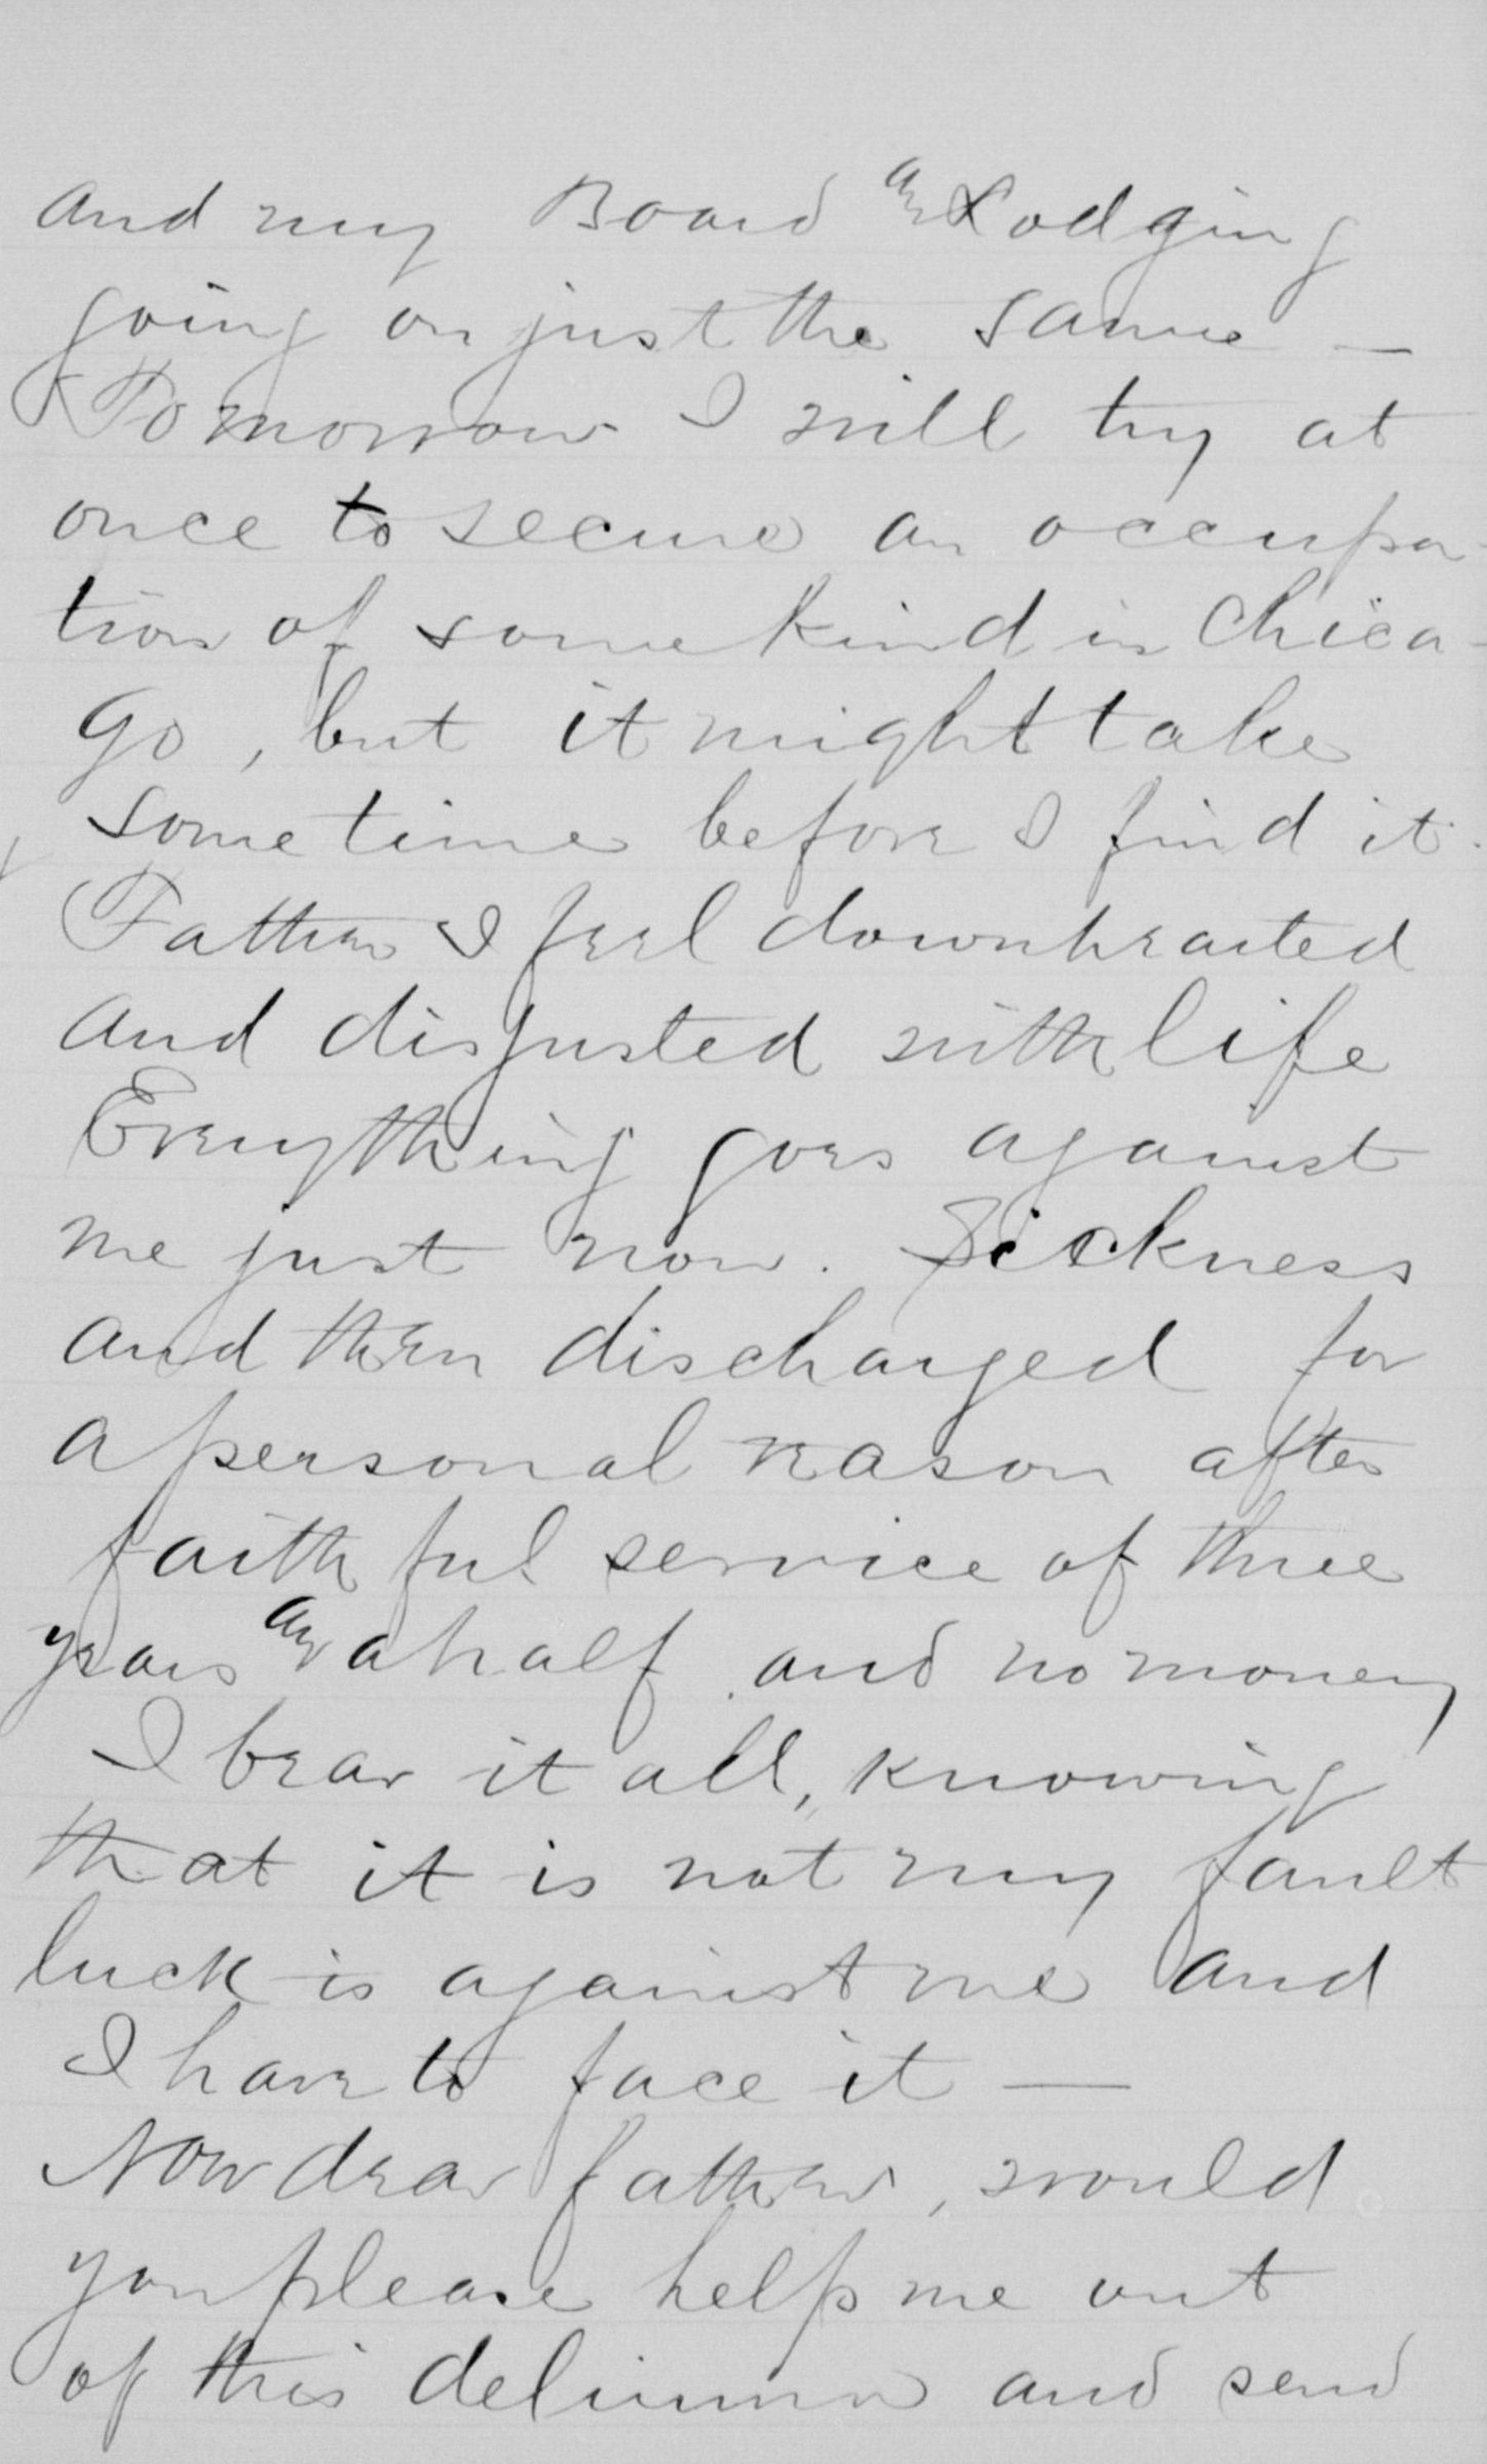 and my Board an Lodging
going on just the same —
Tomorrow I will try at
once to secure an occupa-
tion of some kind in Chica-
go, but it might take
some time before I find it.
Father I feel downhearted
and disgusted with life
Everything goes against
me just now. Sickness
and then discharged for
a personal reason after
faithful service of three
years an a half and no money
I bear it all, knowing
that it is not my fault
luck is against me and
I have to face it —
Now dear father, would
you please help me out
of this delimma and send